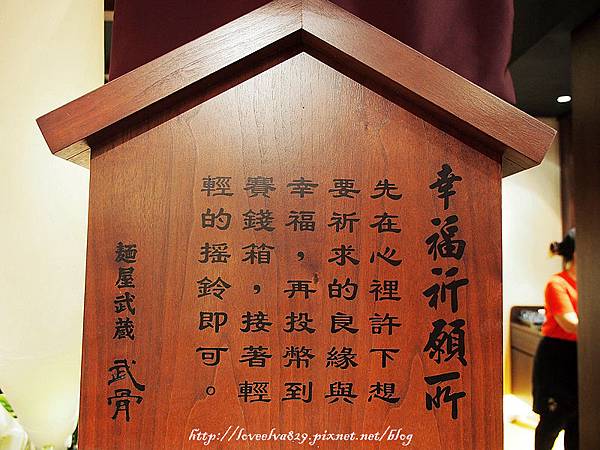 幸福祈願所
先在心裡許下想
要祈求的良緣與
幸福，再投幣到
賽錢箱，接著輕
輕的搖鈴即可。
麺屋武蔵 武骨
http://loveelva829.pixnet.net/blog